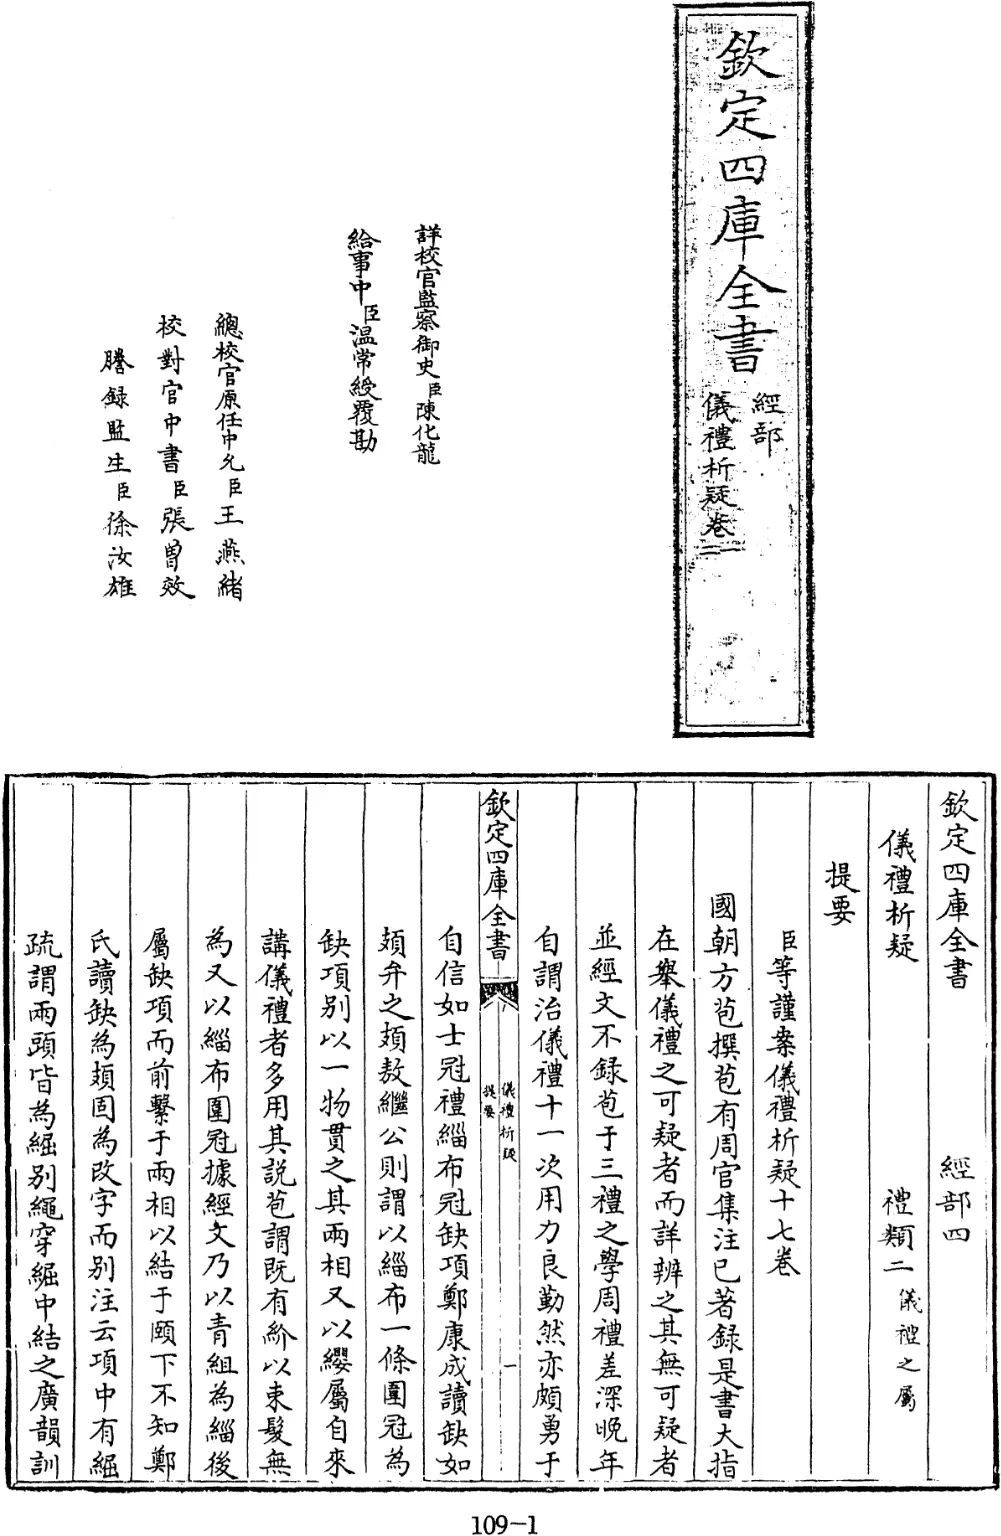 欽定四庫全書
經部
儀禮析疑卷一
二
詳校官監察御史臣陳化龍
給事中臣溫常綬覆勘
總校官原任中允臣王燕緒
校對官中書臣張曾效
謄錄監生臣徐汝雄
欽定四庫全書 經部四
儀禮析疑 禮類二儀禮之屬
提要
臣等謹案儀禮析疑十七卷
國朝方苞撰苞有周官集注已著錄是書大指
在舉儀禮之可疑者而詳辨之其無可疑者
並經文不錄苞于三禮之學周禮差深晚年
自謂治儀禮十一次用力良勤然亦頗勇于
欽定四庫全書
儀禮析疑
提要
一
自信如士冠禮緇布冠缺項鄭康成讀缺如
頍弁之頍敖繼公則謂以緇布一條圍冠為
缺項別以一物貫之其兩相又以纓屬自來
講儀禮者多用其說苞謂既有紒以束髮無
為又以緇布圍冠據經文乃以青組為緇後
屬缺項而前繫于兩相以結于頤下不知鄭
氏讀缺為頍固為改字而別注云項中有䋿
疏謂兩頭皆為䋿別繩穿䋿中結之廣韻訓
109-1